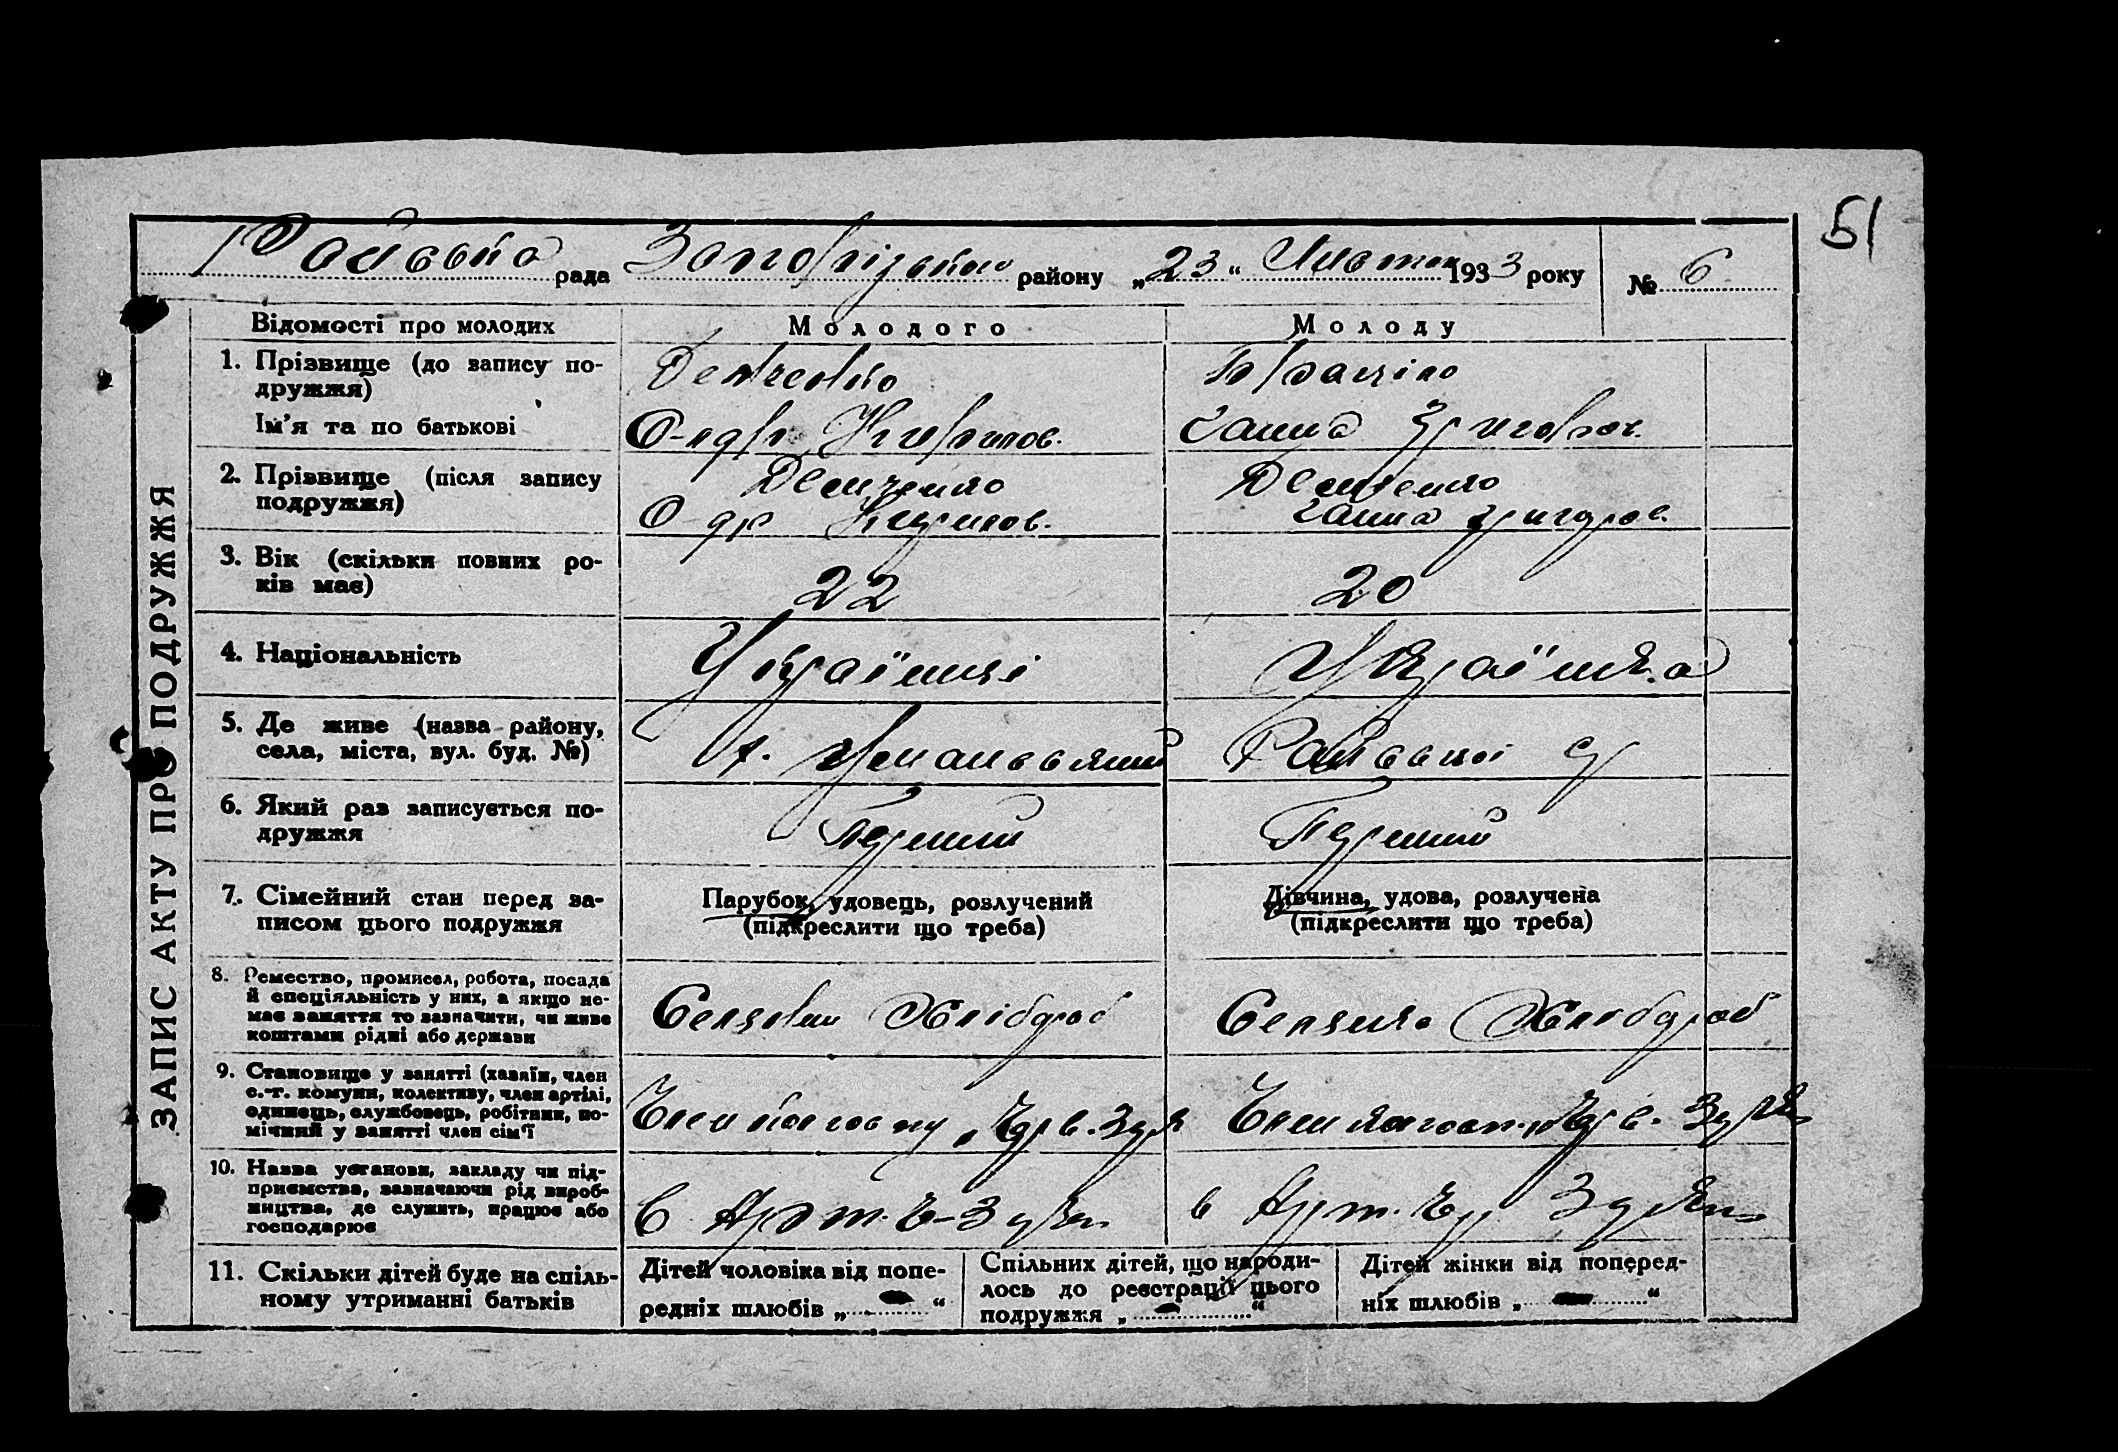 51
Райська рада Запорізького району „23“ Листоп 1933 року № 6
ЗАПИС АКТУ ПРО ПОДРУЖЖЯ
Відомості про молодих
Молодого
Молоду
1. Прізвище (до запису по-
дружжя)
Ім’я та по батькові
Демченко
2. Прізвище (після запису
подружжя)
Демченко
Демченко
Ганна Григоров.
Ганна Григоров.
3. Вік (скільки повних ро-
ків має)
22
20
4. Національність
Українка
5. Де живе (назва району,
села, міста, вул. буд. №)
Райської
6. Який раз записується по-
дружжя
Перший
Перший
7. Сімейний стан перед за-
писом цього подружжя
Парубок, удовець, розлучений
(підкреслити що треба)
Дівчина, удова, розлучена
(підкреслити що треба)
8. Ремество, промисел, робота, посада
й спеціяльність у них, а якщо не-
має заняття то зазначити, чи живе
коштами рідні або держави
Хлібороб
Хлібороб
9. Становище у занятті (хазяїн, член
с.-г. комуни, колективу, член артілі,
одинець, службовець, робітник, по-
мічний у занятті член сім’ї
10. Назва установи, закладу чи під-
приємства, зазначаючи рід вироб-
ництва, де служить, працює або
господарює
в Арт.
в Арт.
11. Скільки дітей буде на спіль-
ному утриманні батьків
Дітей чоловіка від попе-
редніх шлюбів „ — “
Спільних дітей, що народи-
лось до реєстрації цього
подружжя „ — “
Дітей жінки від поперед-
ніх шлюбів „ — “